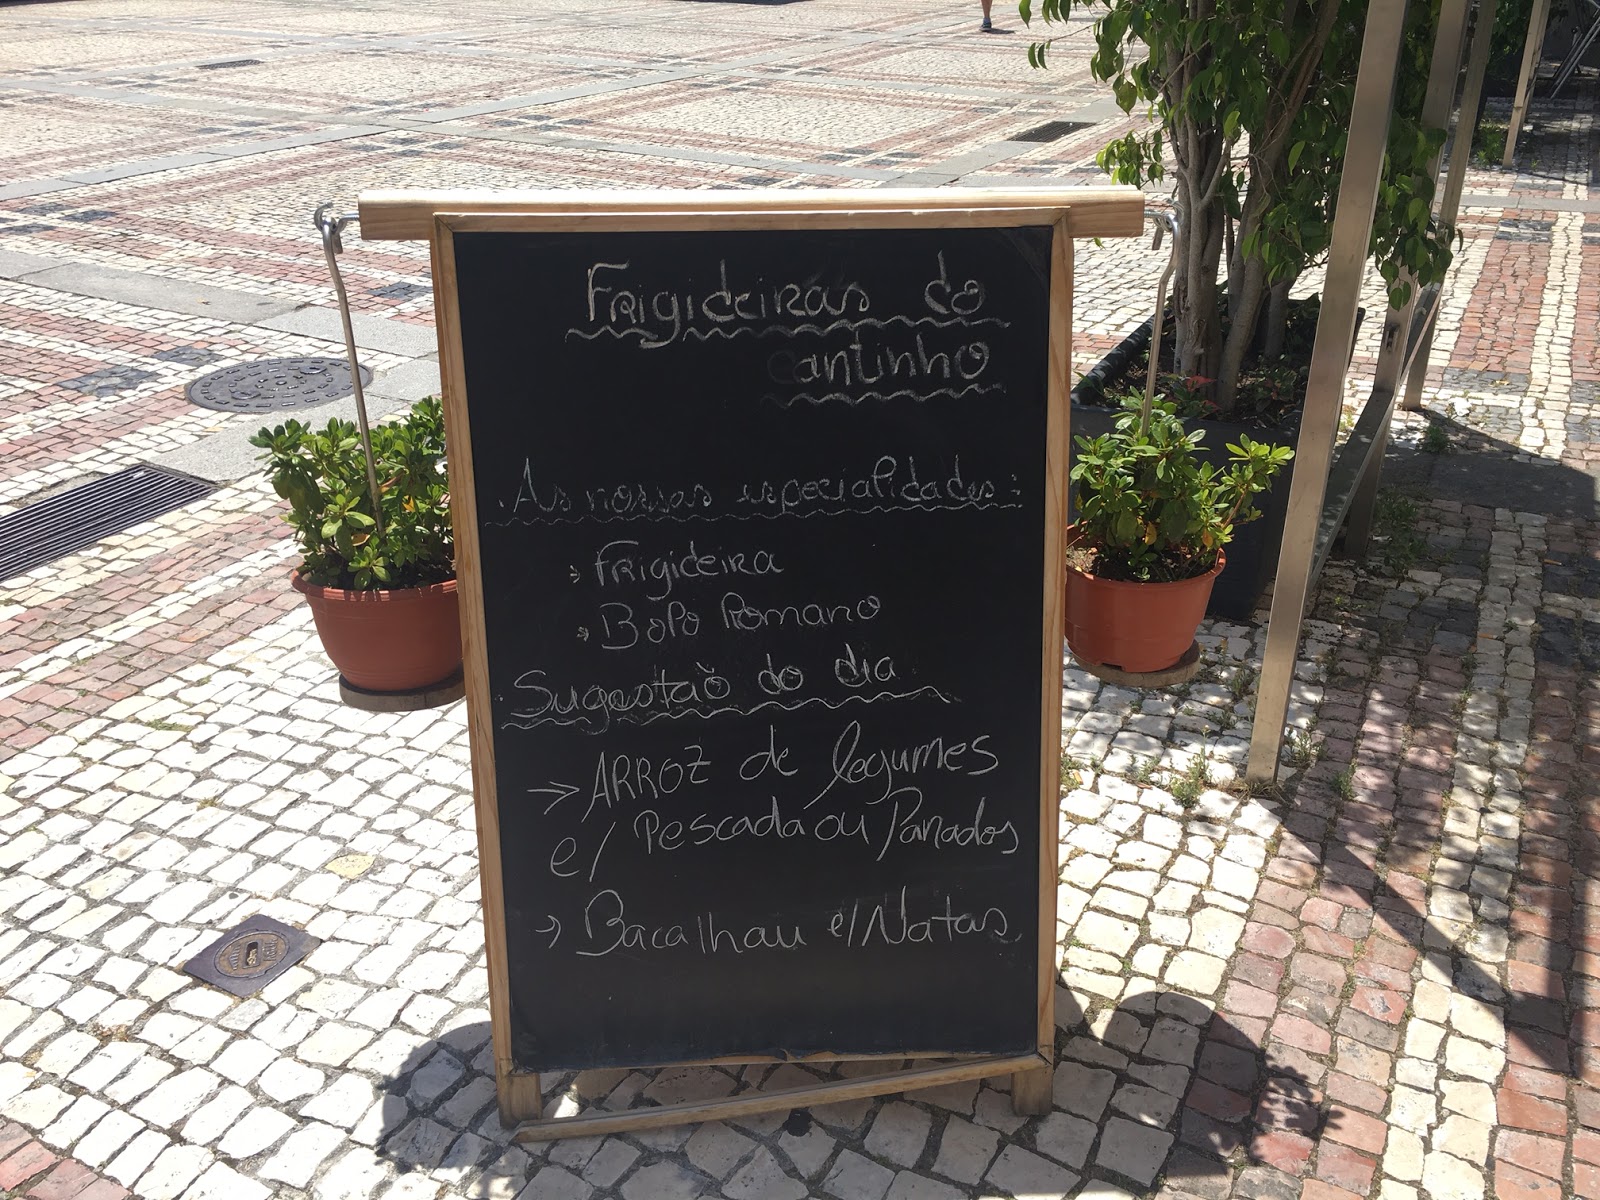 Frigideiras do
cantinho
. As nossas especialidades:
» Frigideira
» Bolo Romano
. Sugestão do dia
-> ARROZ de legumes
c/ Pescada ou Panados
-> Bacalhau c/ Natas